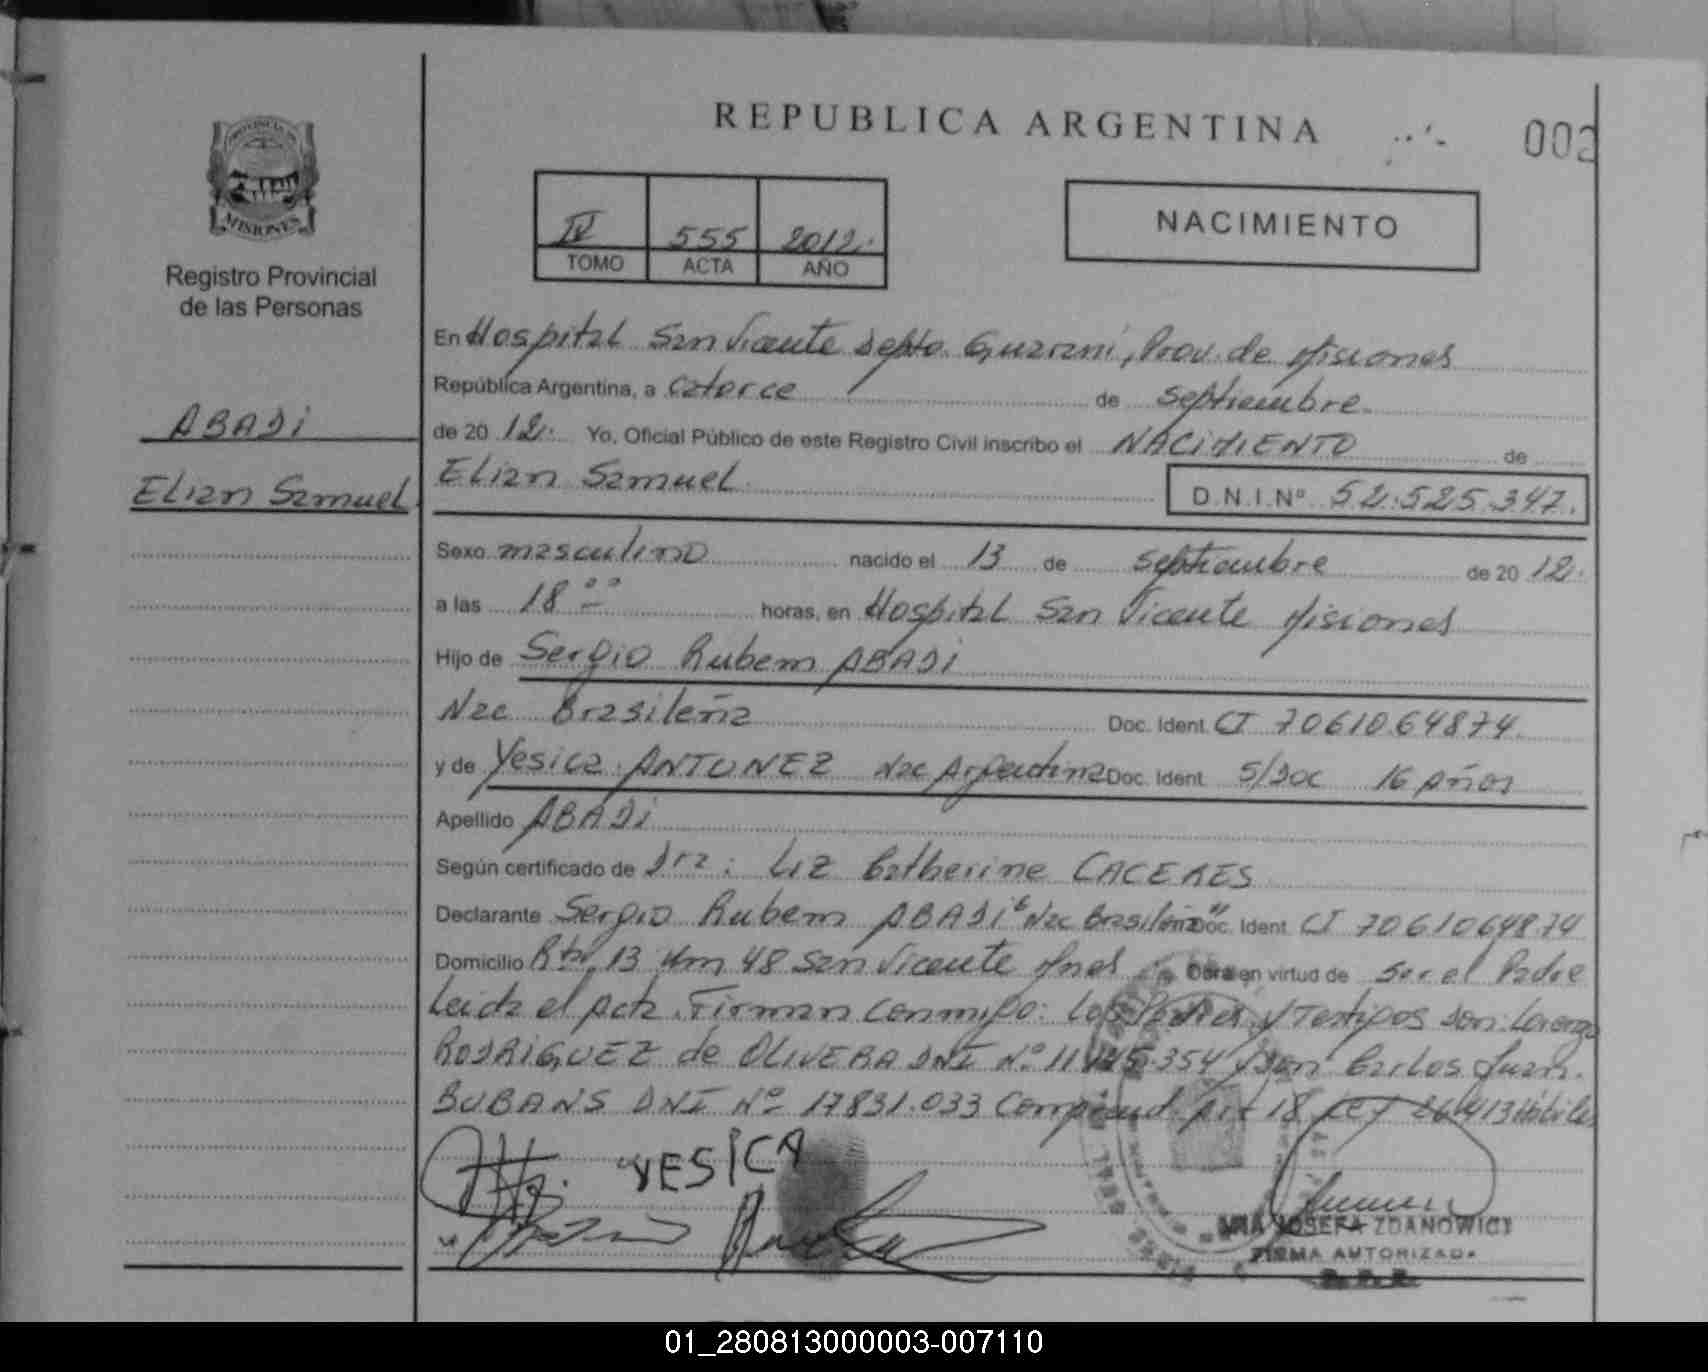 REPUBLICA ARGENTINA
002
PROVINCIA DE
MISIONES
Registro Provincial
de las Personas
IV 555 2012.
TOMO ACTA AÑO
NACIMIENTO
ABADI
Elian Samuel
En Hospital San Vicente Depto. Guarani, Prov. de Misiones
República Argentina, a catorce de septiembre
de 20 12. Yo, Oficial Público de este Registro Civil inscribo el NACIMIENTO de
Elian Samuel D.N.I.Nº 52.525.347.
Sexo masculino nacido el 13 de septiembre de 20 12.
a las 18 ºº horas, en Hospital San Vicente Misiones
Hijo de Sergio Rubem ABADI
Nac Brasileña Doc. Ident. CI 7061064874.
y de Yesica ANTUNEZ Nac Argentina Doc. Ident. S/Doc 16 Años
Apellido ABADI
Según certificado de Dra: Liz Catherine CACERES
Declarante Sergio Rubem ABADI "Nac Brasileña" Doc. Ident. CI 7061064874
Domicilio Rta 13 Km 48 San Vicente Mnes Obra en virtud de Ser el Padre
Leida el Acta. Firman conmigo: Los Padres y Testigos Don: Lorenzo
RODRIGUEZ de OLIVERA DNI Nº y Don Carlos Juan
BUBANS DNI Nº 17831.033 18 Ley 26413 Hábiles
YESICA
ANA JOSEFA ZDANOWICZ
FIRMA AUTORIZADA
R. P. P.
01_280813000003-007110